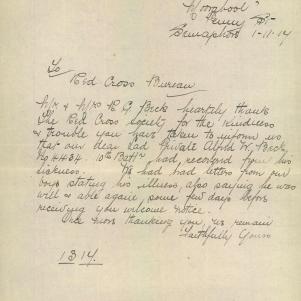 "Moorabool"
Penny St
Semaphore 1-11-17
To
Red Cross Bureau
Mr & Mrs R G Beck heartily thank
The Red Cross Society for the kindness
& trouble you have taken to inform us
that our dear lad Private Alph W. Beck,
No 4434 10th Battn had recovered from his
sickness. We had had letters from our
boys stating his illness, also saying he was
well & able again, some few days before
receiving you welcome notice.
Once more thanking you, we remain
Faithfully Yours
1314.